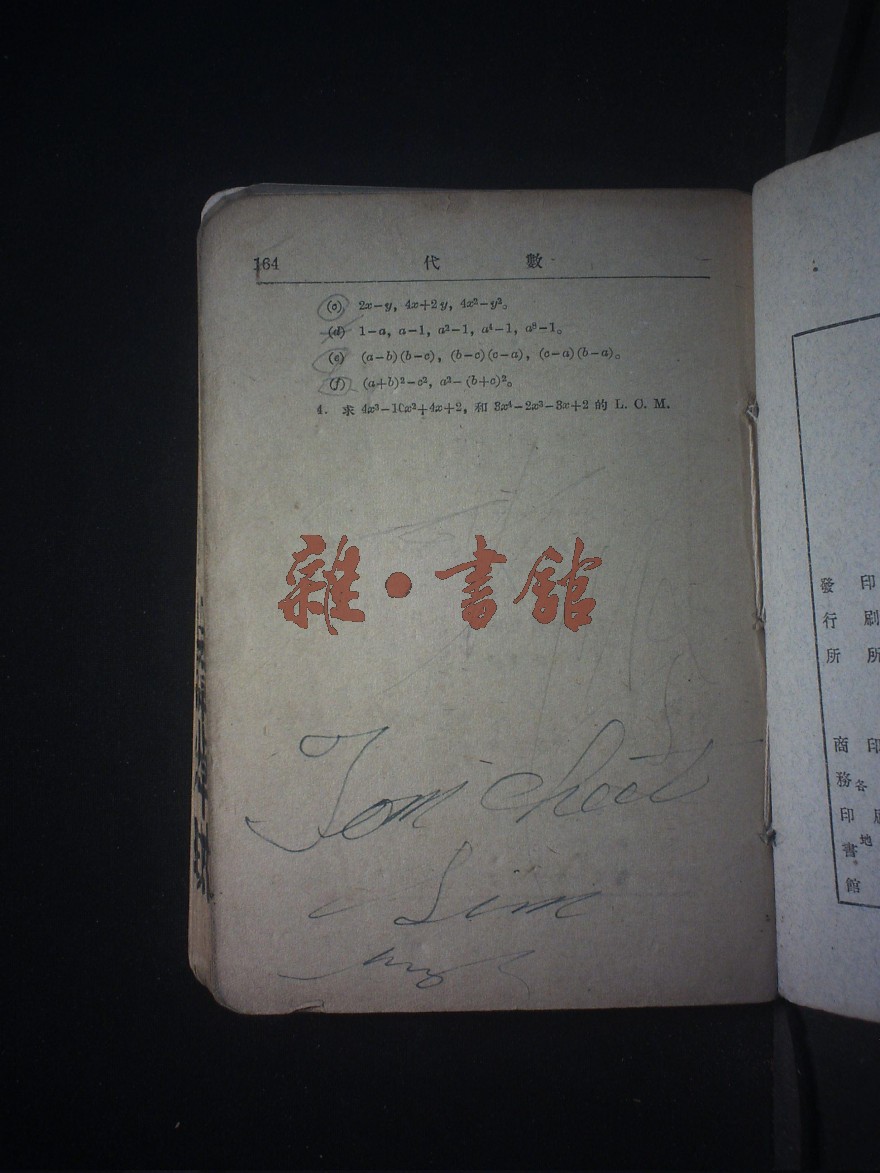 164 代 數
(c) 2x-y, 4x+2y, 4x²-y²。
(d) 1-a, a-1, a²-1, a⁴-1, a⁸-1。
(e) (a-b)(b-c), (b-c)(c-a), (c-a)(b-a)。
(f) (a+b)²-c², a²-(b+c)²。
4. 求 4x³-10x²+4x+2, 和 3x⁴-2x³-3x+2 的 L. C. M.
雜·書館
Lim
發行所
印刷所
商務印書館
印
各地